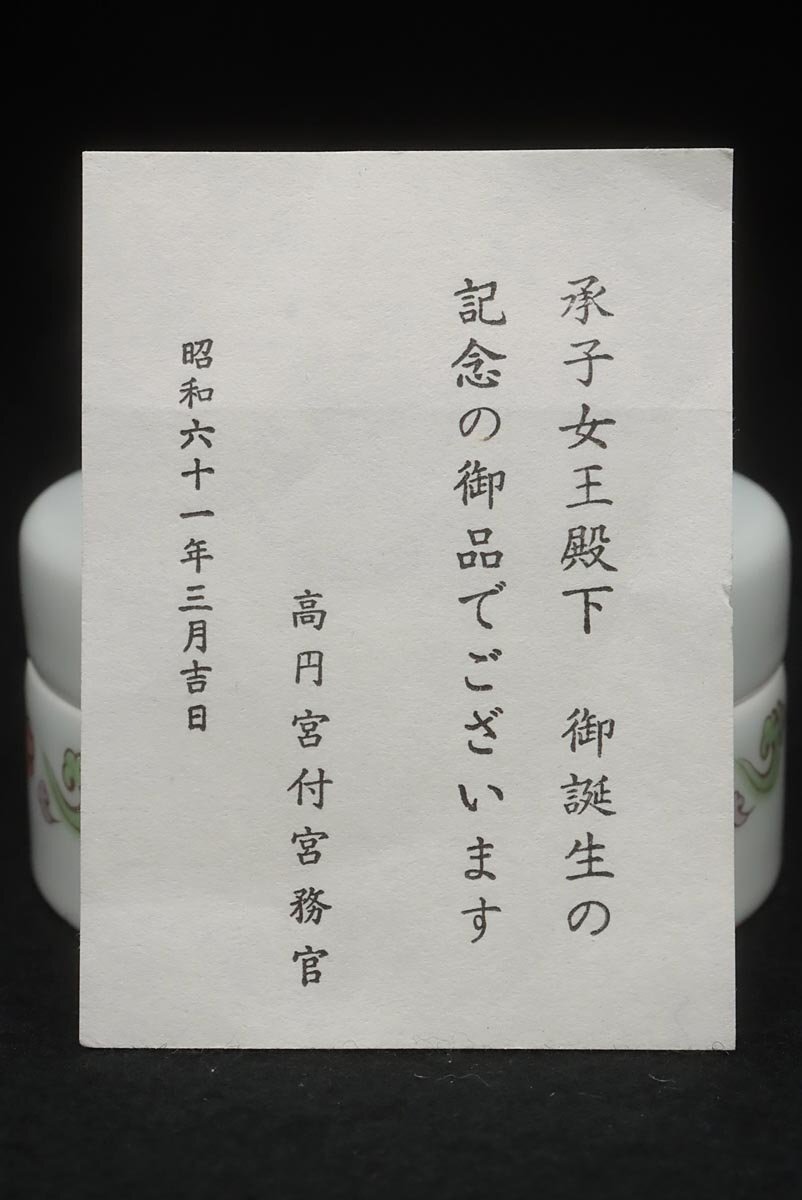 承子女王殿下　御誕生の
記念の御品でございます
高円宮付宮務官
昭和六十一年三月吉日